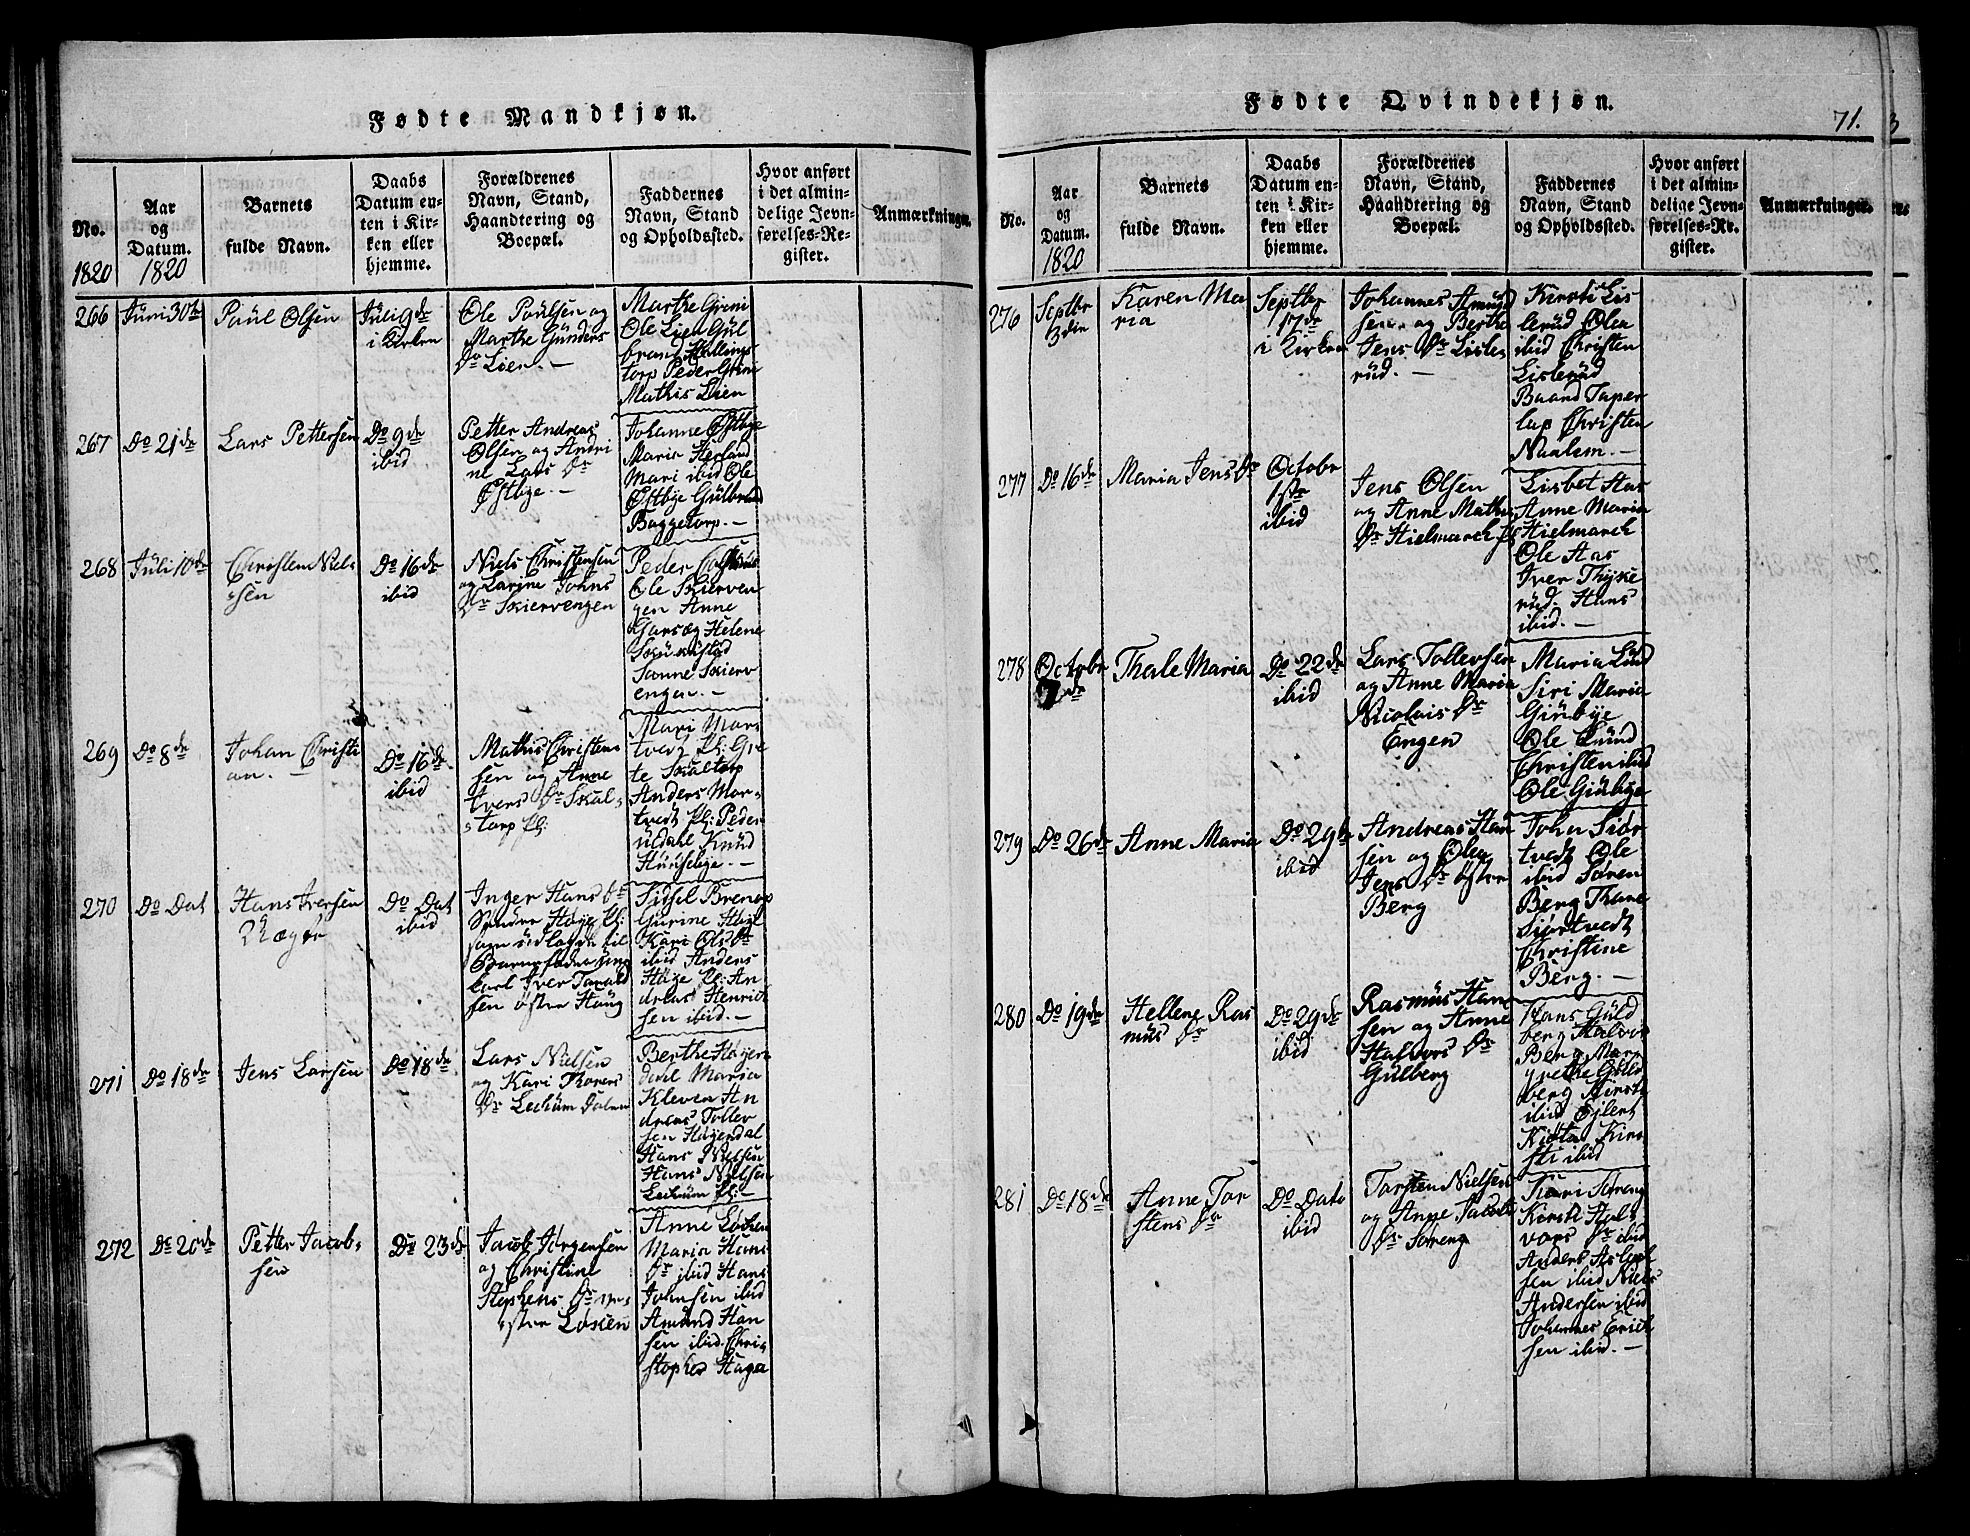 Fødte Mandkjøn.
No.
1820
Aar
og
Datum.
1820
Barnets
fulde Navn.
Daabs
Datum en-
ten i Kir-
ken eller
hjemme.
Forældrenes
Navn, Stand,
Haandtering og
Boepæl.
Faddernes
Navn, Stand
og Opholdssted.
Hvor anført
i det almin-
delige Jevn-
førelses-Re-
gister.
Anmærkninger.
266
Juni 30te
Paul Olsen
Juli 9de
i Kirken
Ole Poulsen og
Marthe Gunders
Dr Lien. —
Marthe Grini
Ole Lien Gul
brant Hellings
torp Peder Grini
Mathis Lien
267
Do 21de
Lars Pettersen
Do 9de
ibid
Petter Andreas
Olsen og Andri
ne Lars Dr
Østbye. —
Johanne Østbye
Maria
Mari ibid Ole
Østbye Gulbrand
Buggetorp. —
268
Juli 10de
Christen Niels
sen
Do 16de
ibid
Niels Christensen
og Karine Johns
Dr Skiervengen
Peder
Ole Skierven
gen Anne
Helene
Sanne Skierv
engen. —
269
Do 8de
Johan Christi
an. —
Do 16de
ibid
Mathis Christen
sen og Anne
Ivers Dr Skal-
storp Pl:
Mari Mars
tvey Pl: Gre
te Skaltorp
Anders Mor-
tvedt Pl: Peder
Knud
Hunsebye. —
270
Do Dat
Hans Iversen
Do Dat
ibid
Inger Hans Dr
Søndre Høye Pl:
som udlagde til
Barnefader ung
karl Iver Tarald
sen østre Haug
Sidsel Brenop
Gurine Høye
Kari Ols Dr
ibid Anders
Høye Pl: An
dreas Henrik
sen ibid. —
271
Do 18de
Jens Larsen
Do 18de
Lars Nielsen
og Kari Thorers
Dr Lechum
Berthe Høyen
dahl Maria
Kleven An
dreas Tollev
sen Høyendal
Hans Nielsen
Hans Nielsen
Lechum Pl: —
272
Do 20de
Petter Jacob-
sen
Do 23de
Jacob Jørgensen
og Christine
Stephens Dr ves
stre Løken
Anne Løken
Maria Hans
Dr ibid Hans
Johnsen ibid
Amund Han
sen ibid. Chri
stopher Haga
Fødte Qvindekjøn.
71.
No.
Aar
og
Datum.
1820
Barnets
fulde Navn.
Daabs
Datum en-
ten i Kir-
ken eller
hjemme.
Forældrenes
Navn, Stand,
Haandtering og
Boepæl.
Faddernes
Navn, Stand
og Opholdssted.
Hvor anført
i det almin-
delige Jevn-
førelses-Re-
gister.
Anmærkninger.
276
Septbr
3die
Karen Ma
ria
Septbr
17de
i Kirken
Johannes Amund
sen og Berthe
Jens Dr Lisle
rud. —
Kirsti Lis
lerud Olea
ibid Christen
Lislerud
Baard Taper
lup Christen
Naalem. —
277
Do 16de
Maria Jens Dr
Octobr
1ste
ibid
Jens Olsen
og Anne Mathis
Dr Hielmarck Pl
Lisbet Aas
Anne Maria
Hielmarck
Ole Aas
Iver Thyke
rud. Hans
ibid. —
278
Octobr
7de
Thale Maria
Do 22de
ibid
Lars Tollevsen
og Anne Maria
Nicolais Dr
Engen
Maria Lund
Siri Maria
Giúbye
Ole Lund
Christen ibid
Ole Giúbye
279
Do 26de
Anne Maria
Do 29de
ibid
Andreas Han
sen og Olea
Jens Dr østre
Berg
John Siør
tvedt Ole
ibid Søren
Berg Thane
Siørtvedt
Christine
Berg. —
280
Do 19de
Hellene Ras
mus Dr
Do 29de
ibid
Rasmus Han
sen og Anne
Halvors Dr
Gulberg
Hans Guld
berg Halvor
Berg Mar
grethe Guld
berg Kirsti
ibid Ejlert
Kiøta Kirs
sti ibid
281
Do 18de
Anne Tor
stens Dr
Do Dato
ibid
Torsten Nielsen
og Anne Jacobs
Dr Søreng
Kari Søreng
Kirsti Hal
vors Dr ibid
Anders Aslach
sen ibid Niels
Andersen ibid
Johannes Erich
sen ibid. —